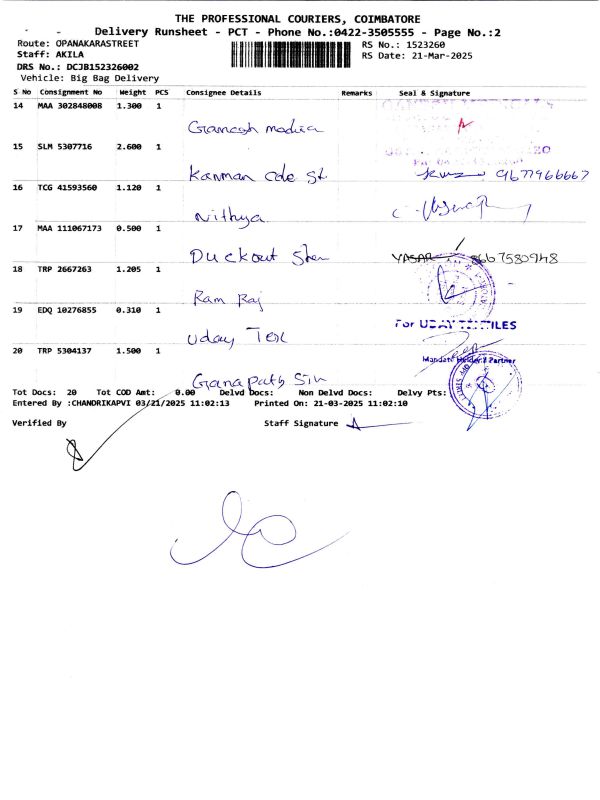 THE PROFESSIONAL COURIERS, COIMBATORE
Delivery Runsheet - PCT - Phone No.:0422-3505555 - Page No.:2
Route: OPANAKARASTREET
RS No.: 1523260
Staff: AKILA
RS Date: 21-Mar-2025
DRS No.: DCJB152326002
Vehicle: Big Bag Delivery
S No Consignment No Weight PCS Consignee Details Remarks Seal & Signature
14 MAA 302848008 1.300 1
Ganesh
15 SLM 5307716 2.600 1
Kanman cde St 9677966667
16 TCG 41593560 1.120 1
Nithya
17 MAA 111067173 0.500 1
Duckout YASAR 8667580948
18 TRP 2667263 1.205 1
Ram Raj
19 EDQ 10276855 0.310 1
Uday Tex
For UDAY TEXTILES
20 TRP 5304137 1.500 1
Partner
Ganapath Silk
Tot Docs: 20 Tot COD Amt: 0.00 Delvd Docs: Non Delvd Docs: Delvy Pts:
Entered By :CHANDRIKAPVI 03/21/2025 11:02:13 Printed On: 21-03-2025 11:02:10
Verified By Staff Signature